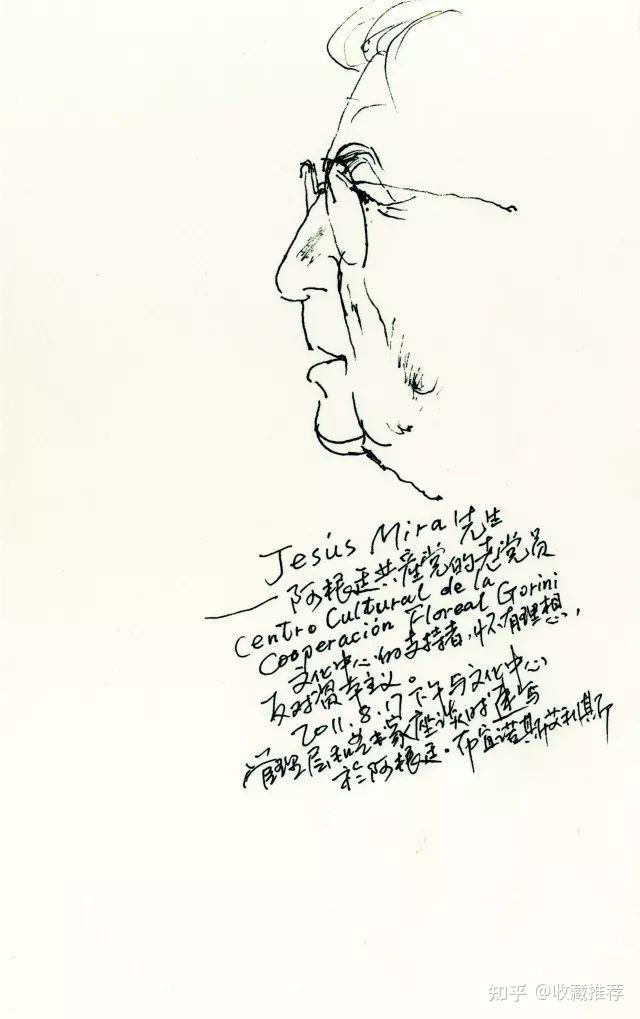 Jesús Mira 先生
阿根廷共產党的老党员
Centro Cultural de la
Cooperación Floreal Gorini
文化中心的支持者,怀有理想,
反对资本主义。
2011.8.17下午与文化中心
管理层和艺术家座谈时速写
于阿根廷·布宜诺斯艾利斯
知乎 @收藏推荐